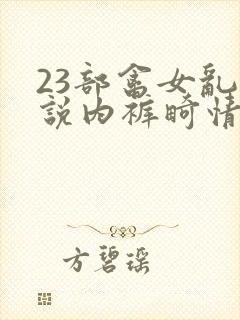 23部畲女乱
說内裤畸情
方碧瑶